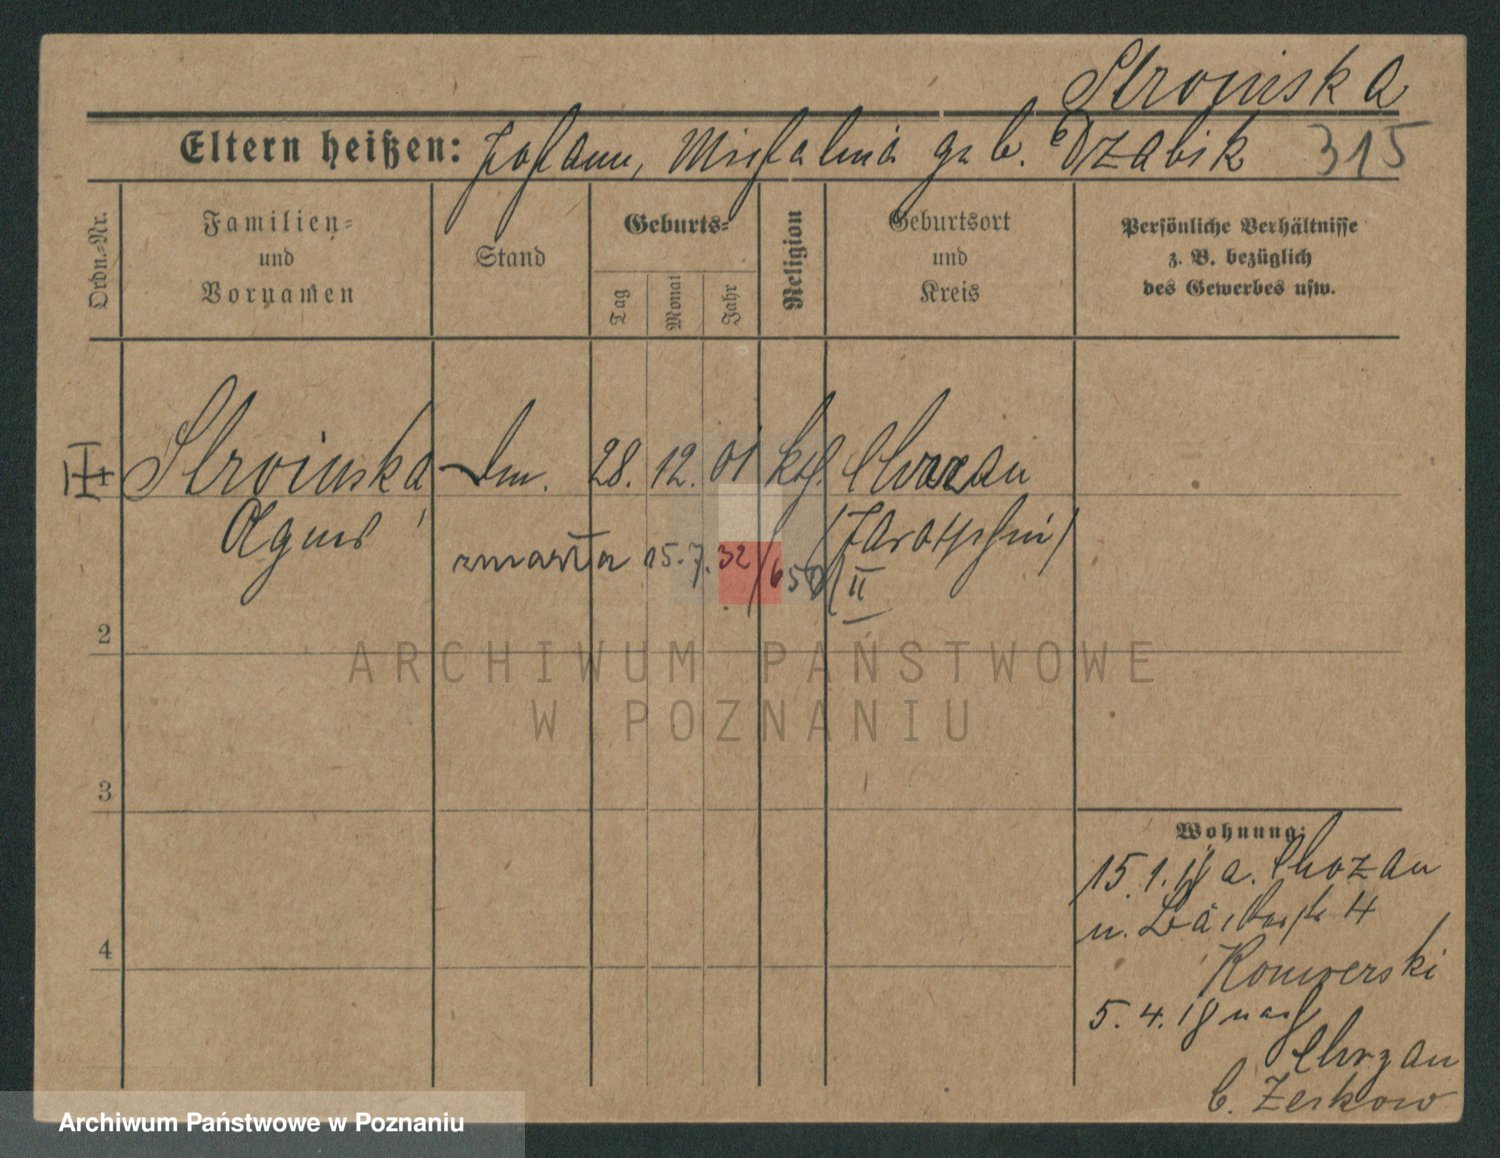 Stroinska
Eltern heißen: Johann, Michalina geb. Dzabik 315
Ordn.-Nr.
Familien-
und
Vornamen
Stand
Geburts-
Tag
Monat
Jahr
Religion
Geburtsort
und
Kreis
Persönliche Verhältnisse
z. B. bezüglich
des Gewerbes usw.
Stroinska Dm. 28. 12. 01 kth. Chrzan
Agnes (Jarotschin)
zmarła 15.7.32/650/II
2
3
4
Wohnung:
15.1.18 a. Chrzan
n. 4
Komverski
5.4.18 nach
Chrzan
b. Zerkow
ARCHIWUM PAŃSTWOWE
W POZNANIU
Archiwum Państwowe w Poznaniu